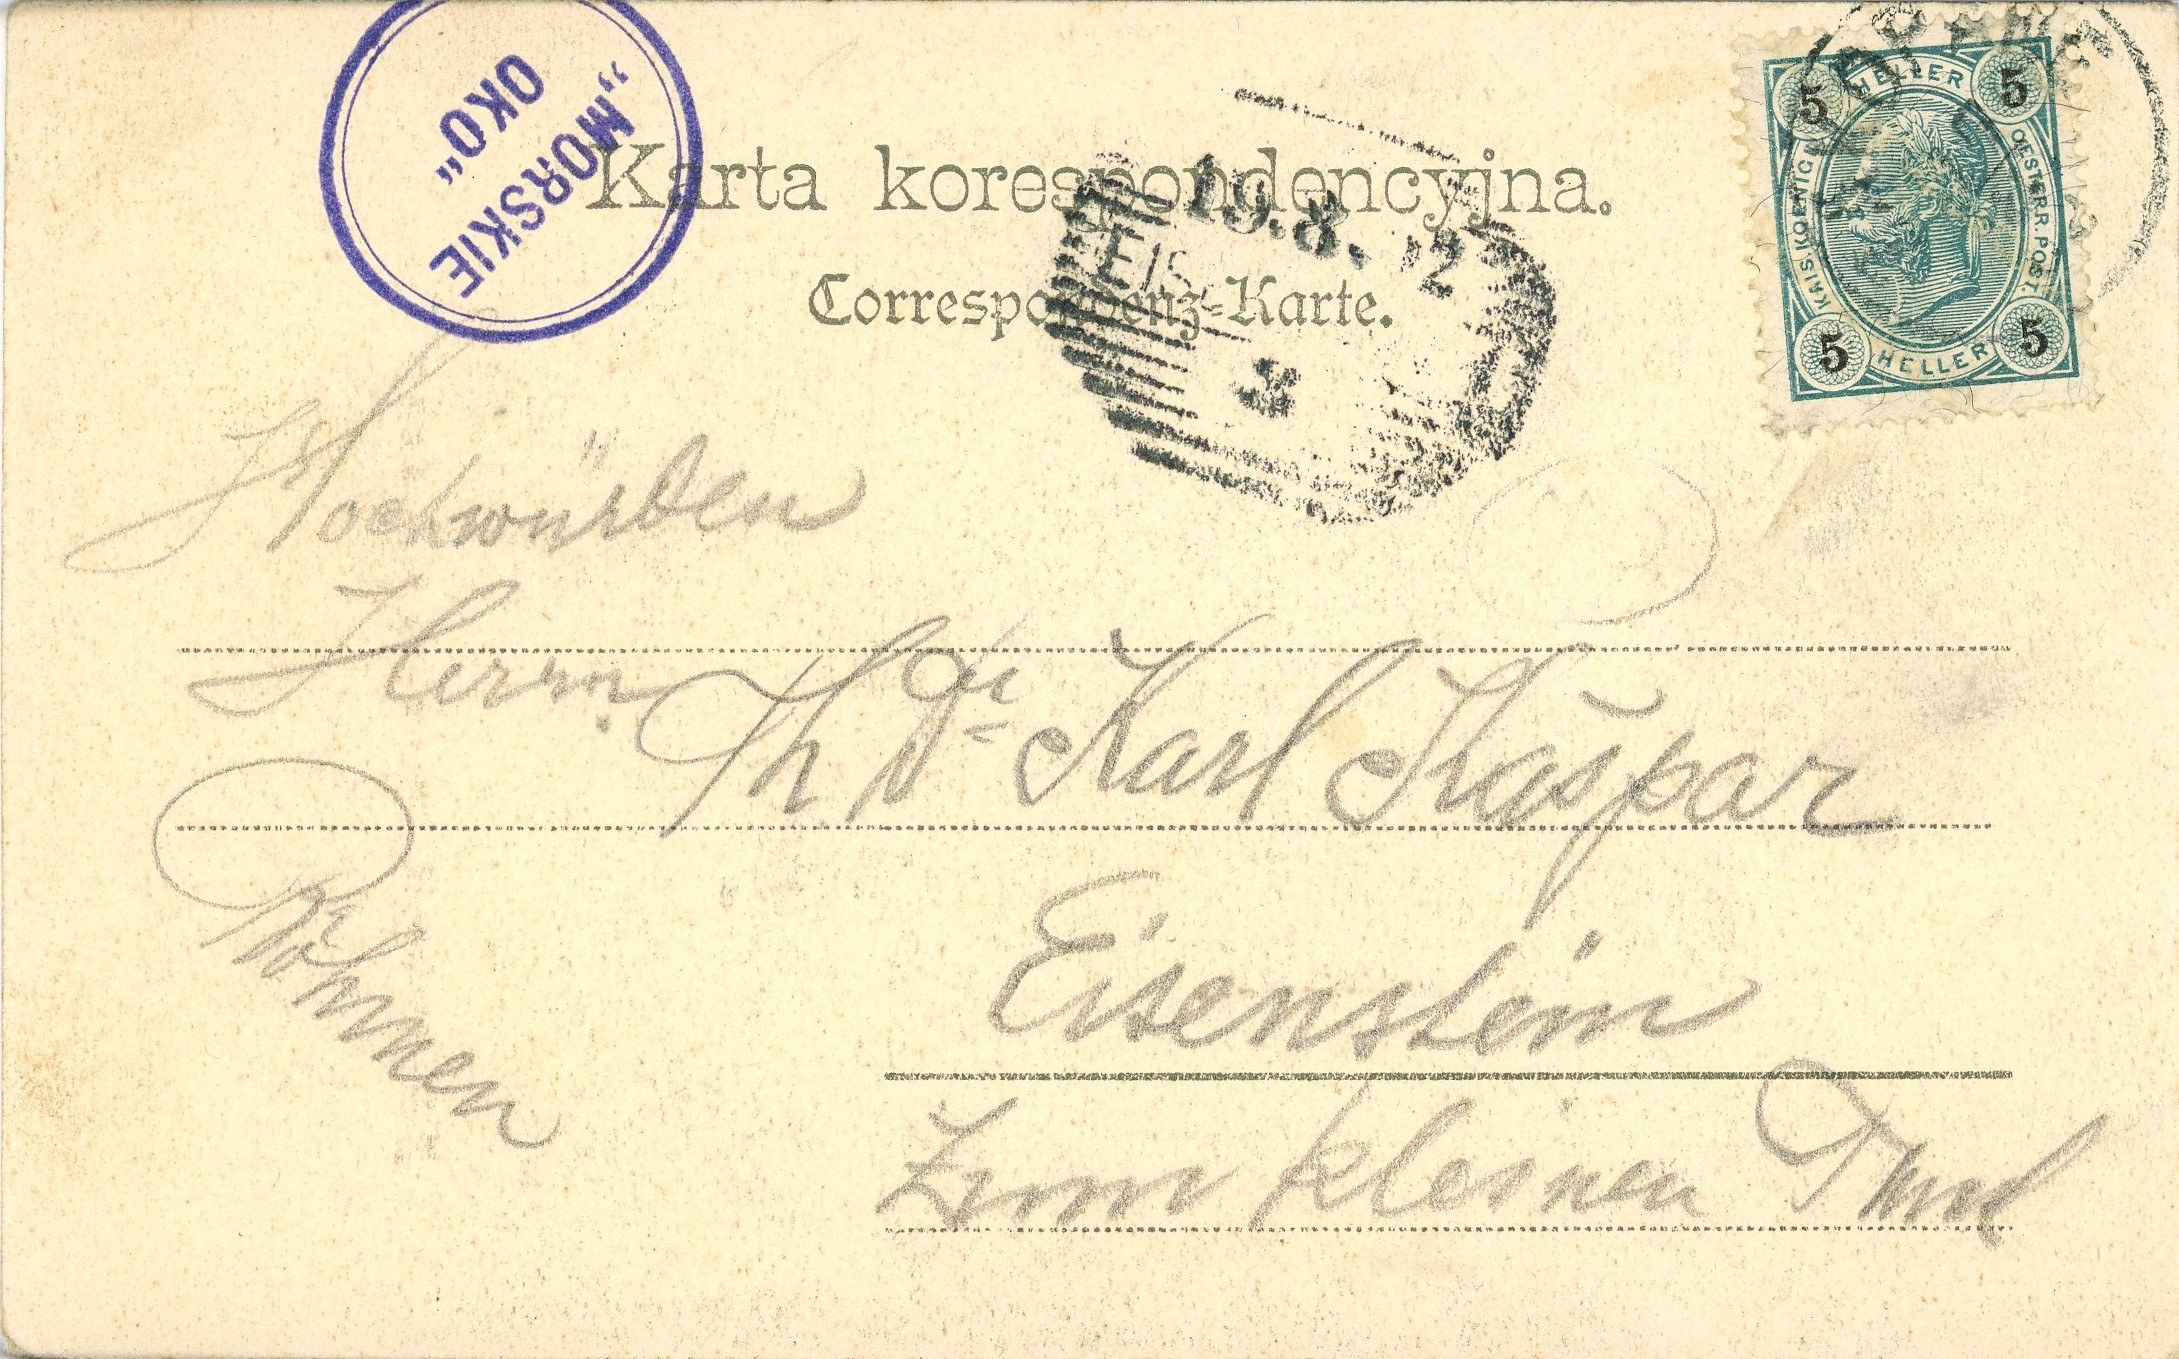 „MORSKIE
OKO“
Karta korespondencyjna.
Correspondenz-Karte.
19.8. 02
EIS
5 HELLER 5
KAIS. KOENIGL.
OESTERR. POST.
5 HELLER 5
Hochwürden
Herrn Th Dr Karl Kašpar
Eisenstein
Zum kleinen
Böhmen